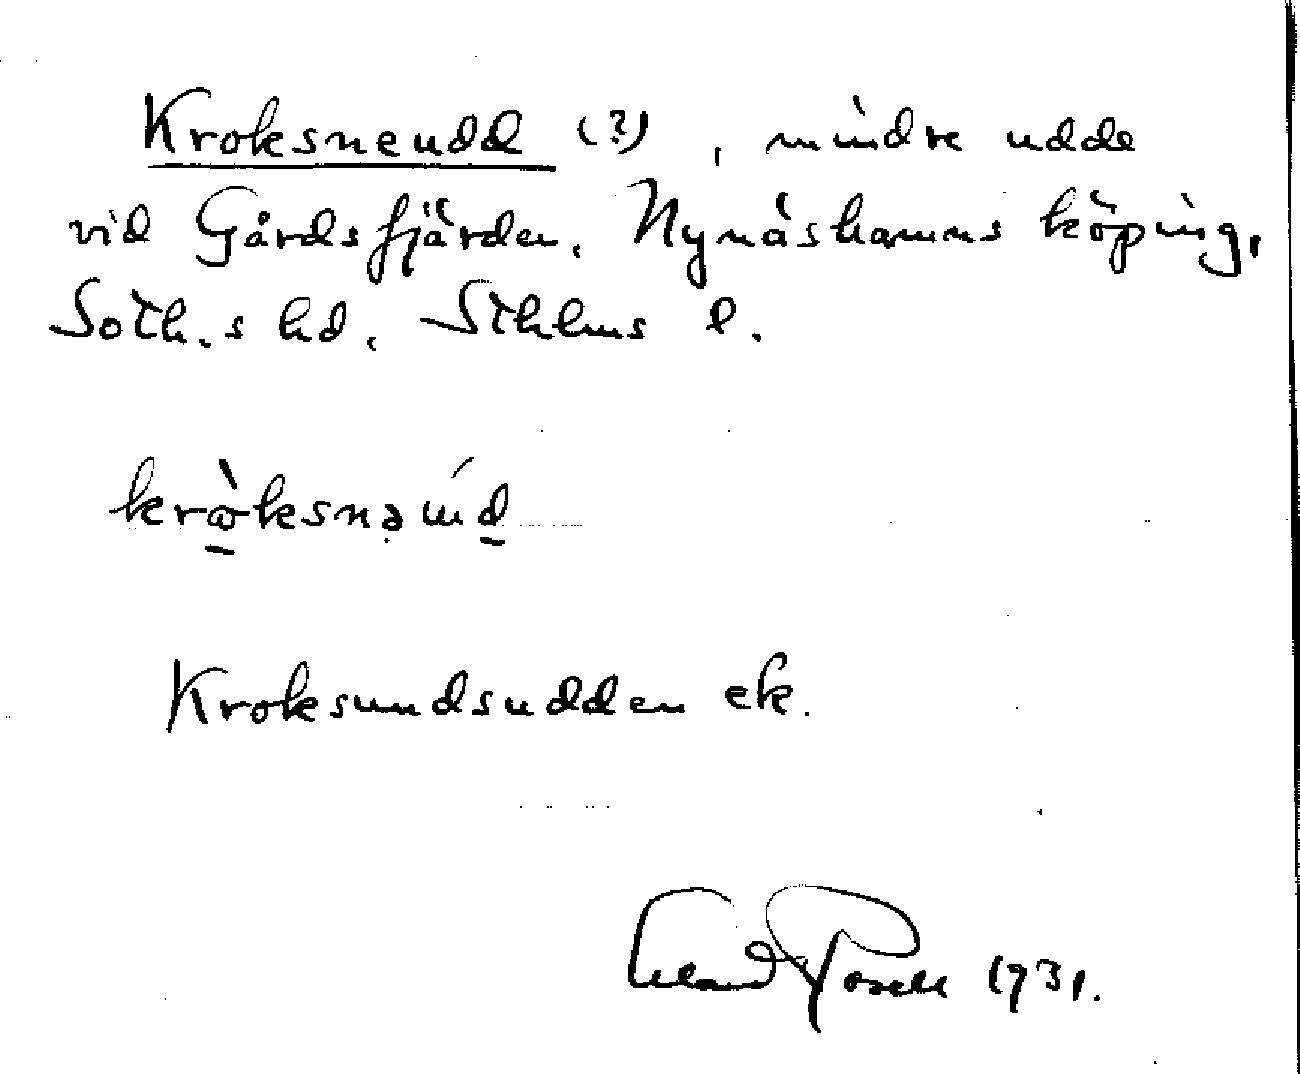 Kroksneudd (?), mindre udde
vid Gårdsfjärden, Nynäshamns köping,
Soth.s hd, Sthlms l.
krò̱ksnəúd̲
Kroksundsudden ek.
1931.